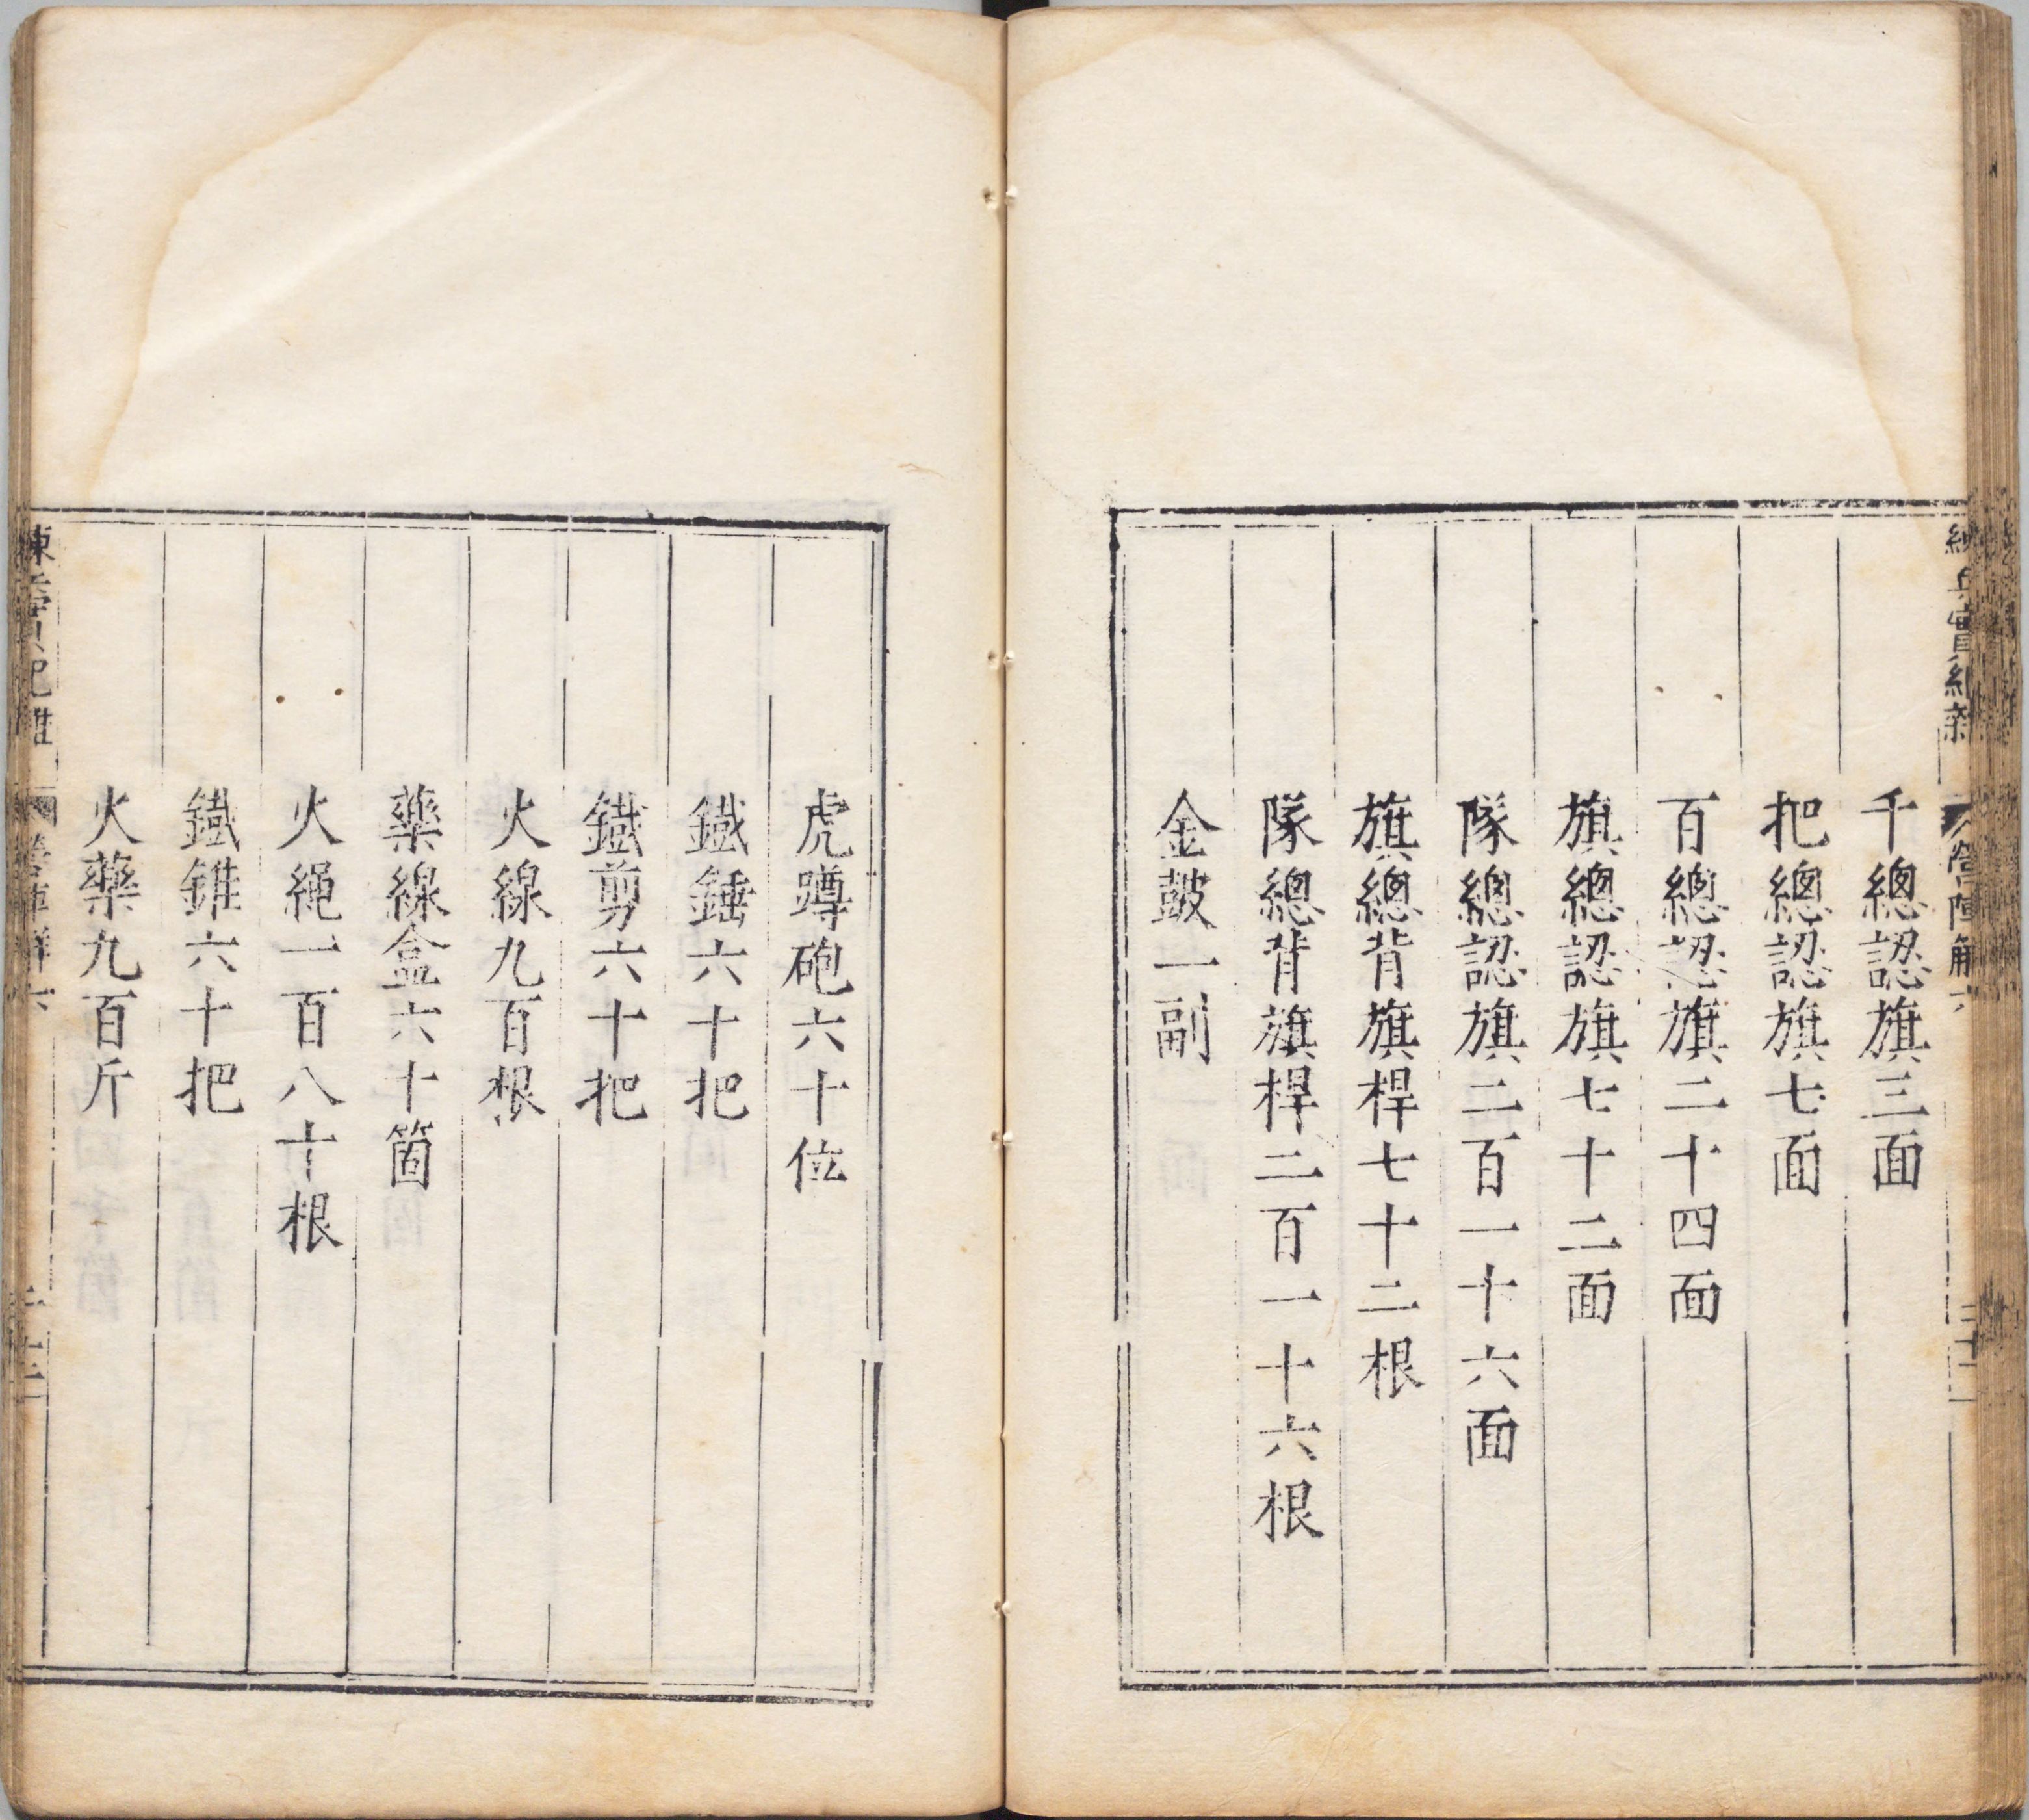 千總認旗三面
把總認旗七面
百總認旗二十四面
旗總認旗七十二面
隊總認旗二百一十六面
旗總背旗桿七十二根
隊總背旗桿二百一十六根
金鼓一副
虎蹲砲六十位
鐵錘六十把
鐵剪六十把
火線九百根
藥線盒六十箇
火繩一百八十根
鐵錐六十把
火藥九百斤